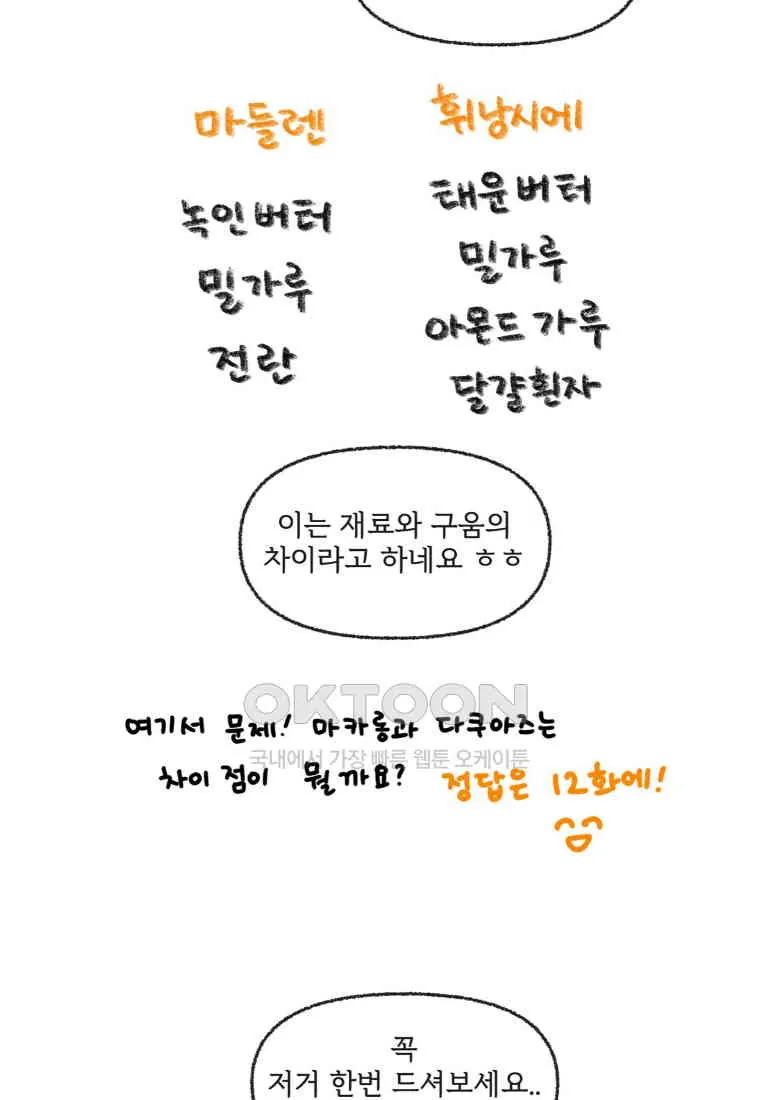 마들렌
녹인버터
밀가루
전란
휘낭시에
태운버터
밀가루
아몬드 가루
달걀흰자
이는 재료와 구움의
차이라고 하네요 ㅎㅎ
OKTOON
국내에서 가장 빠른 웹툰 오케이툰
여기서 문제! 마카롱과 다쿠아즈는
차이점이 뭘까요? 정답은 12화에!
꼭
저거 한번 드셔보세요..